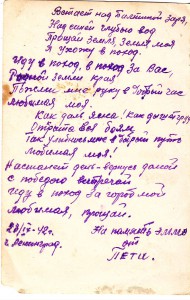 Встает над Балтикой заря,
Над синей глубью вод
Прощай земля, земля моя
Я ухожу в поход.
Иду в поход, в поход за Вас,
Родной земли края
Пожми мне руку в добрый час
Любимая моя.
Как даль ясна! Как дышет грудь
Открыта вся боям,
Так улыбнись мне в бурный путь
Любимая моя!
Настанет день - вернусь домой
с победою встречай
Иду в поход за город мой
Любимая, прощай.
г. Ленинград.
На память
от
ПЕТИ.